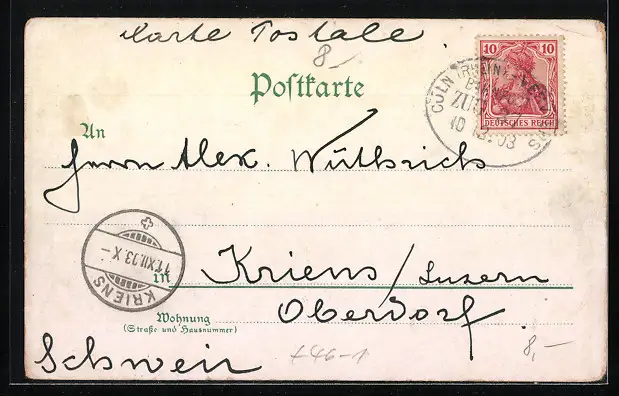 Karte Postale
8
Postkarte
10 10
DEUTSCHES REICH
CÖLN (RHEIN)
ZUG
10 12.03
An
Herrn Alex. Wüthrich
in Kriens/Luzern
KRIENS
11.XII.03 X-
Wohnung
(Straße und Hausnummer)
Oberdorf.
Schweiz
+46-1
8,-